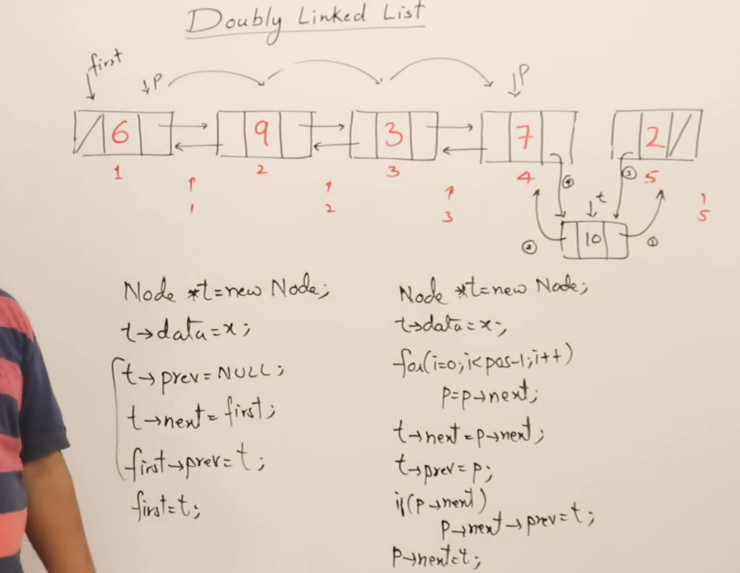 Doubly Linked List
first
P
P
6 9 3 7 2
1 2 3 4 5
1 2 3 5
④ ③
t
10
② ①
Node *t=new Node;
t→data=x;
t→prev=NULL;
t→next=first;
first→prev=t;
first=t;
Node *t=new Node;
t→data=x;
for(i=0;i<pos-1;i++)
P=P→next;
t→next=p→next;
t→prev=p;
if(p→next)
p→next→prev=t;
p→next=t;